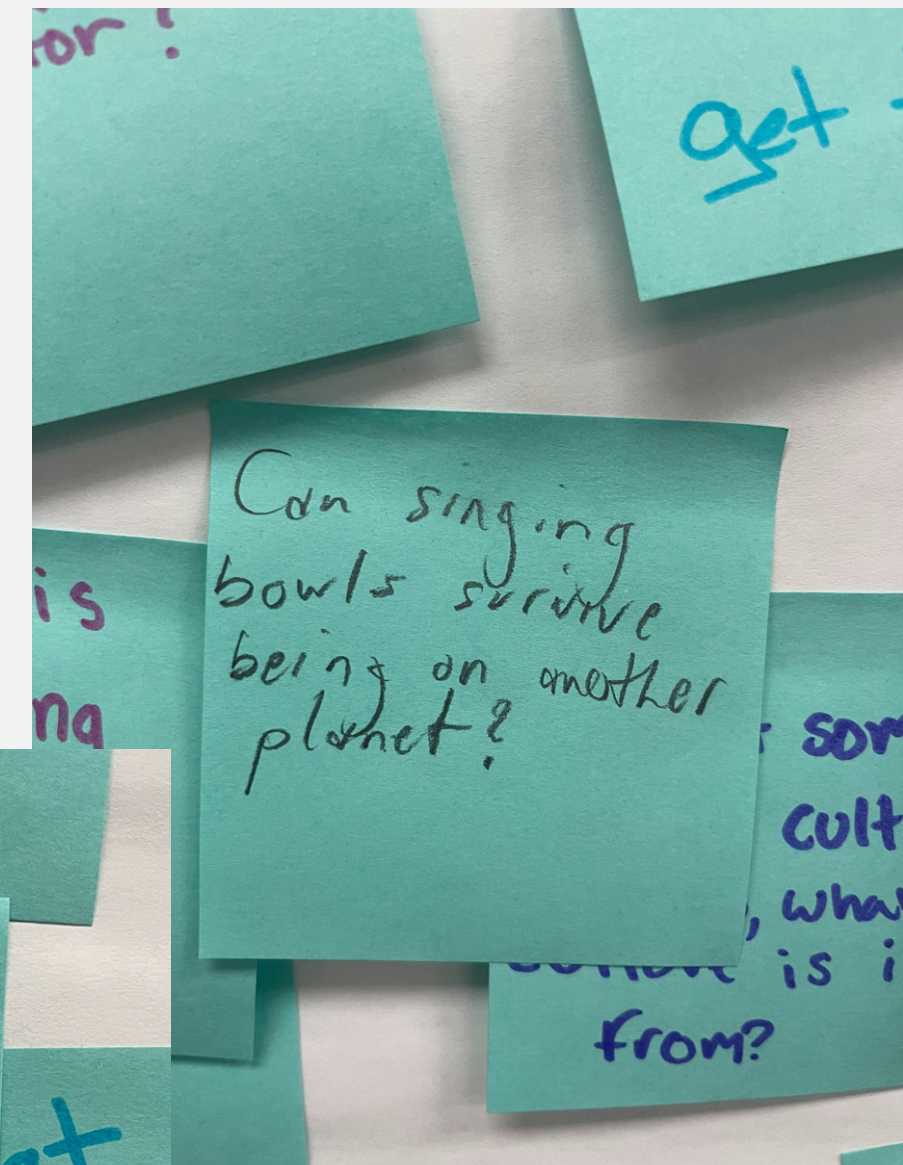 or?
get
Can singing
bowls survive
being on another
planet?
is
na
som
cult
, what
is i
from?